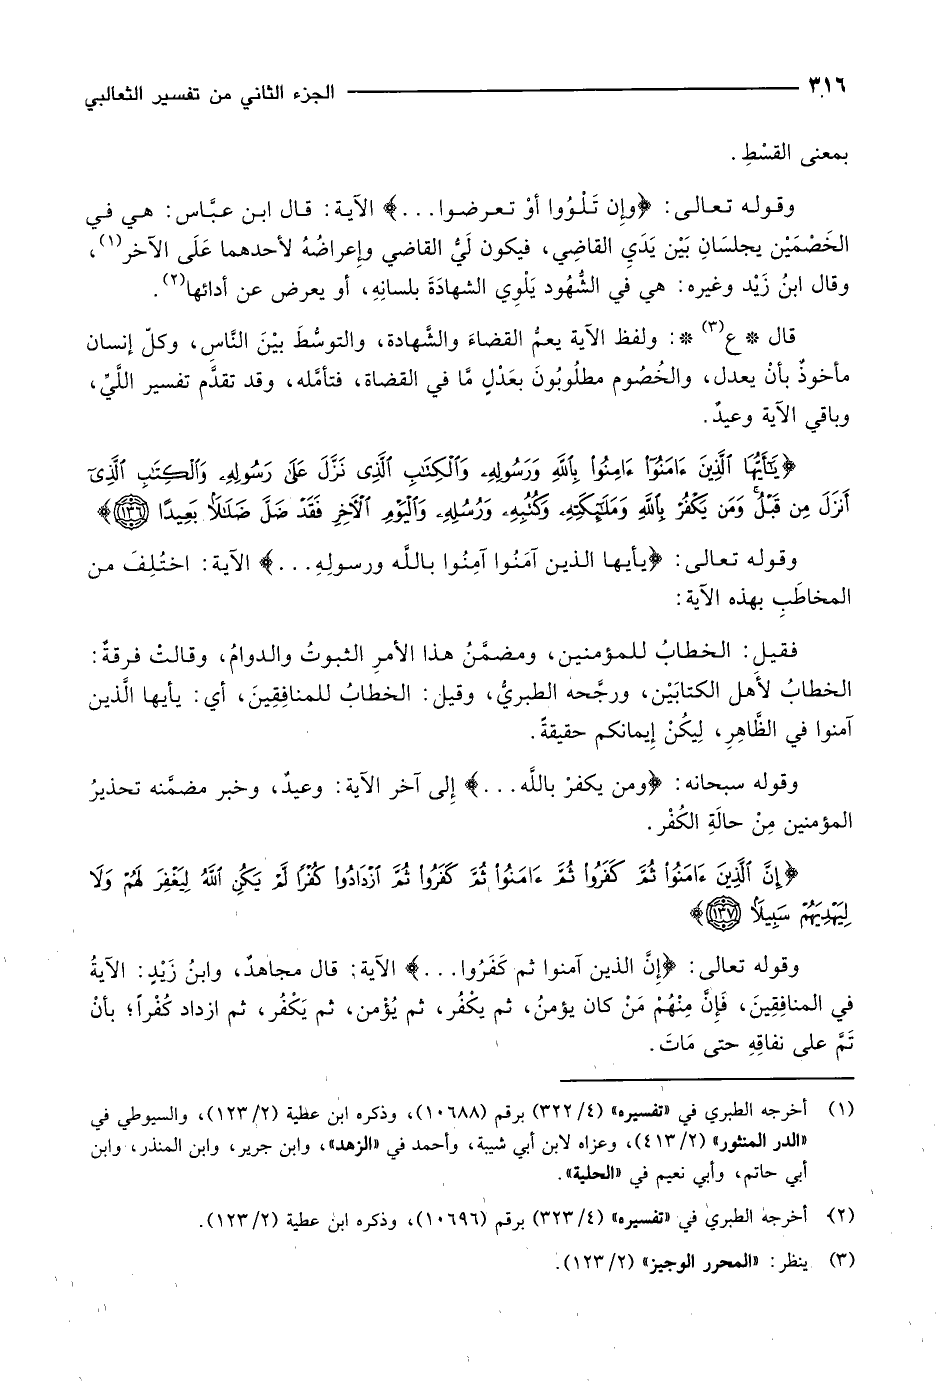 ٣١٦ الجزء الثاني من تفسير الثعالبي
بمعنى القسْطِ.
وقوله تعالى: ﴿وإِن تَلْوُوا أوْ تعرضوا...﴾ الآية: قال ابن عبَّاس: هي في
الخَصْمَيْن يجلسَانِ بَيْن يَدَيِ القاضِي، فيكون لَيُّ القاضي وإِعراضُهُ لأحدهما عَلَى الآخر(١)،
وقال ابنُ زَيْد وغيره: هي في الشُّهُود يَلْوِي الشهادَةَ بلسانِهِ، أو يعرض عن أدائها(٢).
قال * ع(٣) *: ولفظ الآية يعمُّ القضاءَ والشَّهادة، والتوسُّطَ بيْنَ النَّاسِ، وكلّ إنسان
مأخوذٌ بأنْ يعدل، والخُصُوم مطلُوبُونَ بعَدْلٍ مَّا في القضاة، فتأمَّله، وقد تقدَّم تفسير اللَّيِّ،
وباقي الآية وعيدٌ.
﴿يَٰٓأَيُّهَا ٱلَّذِينَ ءَامَنُوٓا۟ ءَامِنُوا۟ بِٱللَّهِ وَرَسُولِهِۦ وَٱلْكِتَٰبِ ٱلَّذِى نَزَّلَ عَلَىٰ رَسُولِهِۦ وَٱلْكِتَٰبِ ٱلَّذِىٓ
أَنزَلَ مِن قَبْلُ ۚ وَمَن يَكْفُرْ بِٱللَّهِ وَمَلَٰٓئِكَتِهِۦ وَكُتُبِهِۦ وَرُسُلِهِۦ وَٱلْيَوْمِ ٱلْءَاخِرِ فَقَدْ ضَلَّ ضَلَٰلًۢا بَعِيدًا ١٣٦﴾
وقوله تعالى: ﴿يأيها الذين آمَنُوا آمِنُوا باللَّه ورسولِهِ...﴾ الآية: اختُلِفَ من
المخاطَبِ بهذه الآية:
فقيل: الخطابُ للمؤمنين، ومضمَّنُ هذا الأمرِ الثبوتُ والدوامُ، وقالتْ فرقةٌ:
الخطابُ لأهل الكتابَيْن، ورجَّحه الطبريُّ، وقيل: الخطابُ للمنافِقِينَ، أي: يأيها الَّذين
آمنوا في الظَّاهِرِ، لِيكُنْ إِيمانكم حقيقةً.
وقوله سبحانه: ﴿ومن يكفرْ باللَّه...﴾ إِلى آخر الآية: وعيدٌ، وخبر مضمَّنه تحذيرُ
المؤمنين مِنْ حالَةِ الكُفْر.
﴿إِنَّ ٱلَّذِينَ ءَامَنُوا۟ ثُمَّ كَفَرُوا۟ ثُمَّ ءَامَنُوا۟ ثُمَّ كَفَرُوا۟ ثُمَّ ٱزْدَادُوا۟ كُفْرًا لَّمْ يَكُنِ ٱللَّهُ لِيَغْفِرَ لَهُمْ وَلَا
لِيَهْدِيَهُمْ سَبِيلًۢا ١٣٧﴾
وقوله تعالى: ﴿إِنَّ الذين آمنوا ثم كَفَرُوا...﴾ الآية: قال مجاهدٌ، وابنُ زَيْدٍ: الآيةُ
في المنافِقِينَ، فَإِنَّ مِنْهُمْ مَنْ كان يؤمنُ، ثم يكْفُر، ثم يُؤْمن، ثم يَكْفُر، ثم ازداد كُفْراً؛ بأنْ
تَمَّ على نفاقِهِ حتى مَاتَ.
(١) أخرجه الطبري في «تفسيره» (٣٢٢/٤) برقم (١٠٦٨٨)، وذكره ابن عطية (١٢٣/٢)، والسيوطي في
«الدر المنثور» (٤١٣/٢)، وعزاه لابن أبي شيبة، وأحمد في «الزهد»، وابن جرير، وابن المنذر، وابن
أبي حاتم، وأبي نعيم في «الحلية».
(٢) أخرجه الطبري في «تفسيره» (٣٢٣/٤) برقم (١٠٦٩٦)، وذكره ابن عطية (١٢٣/٢).
(٣) ينظر: «المحرر الوجيز» (١٢٣/٢).